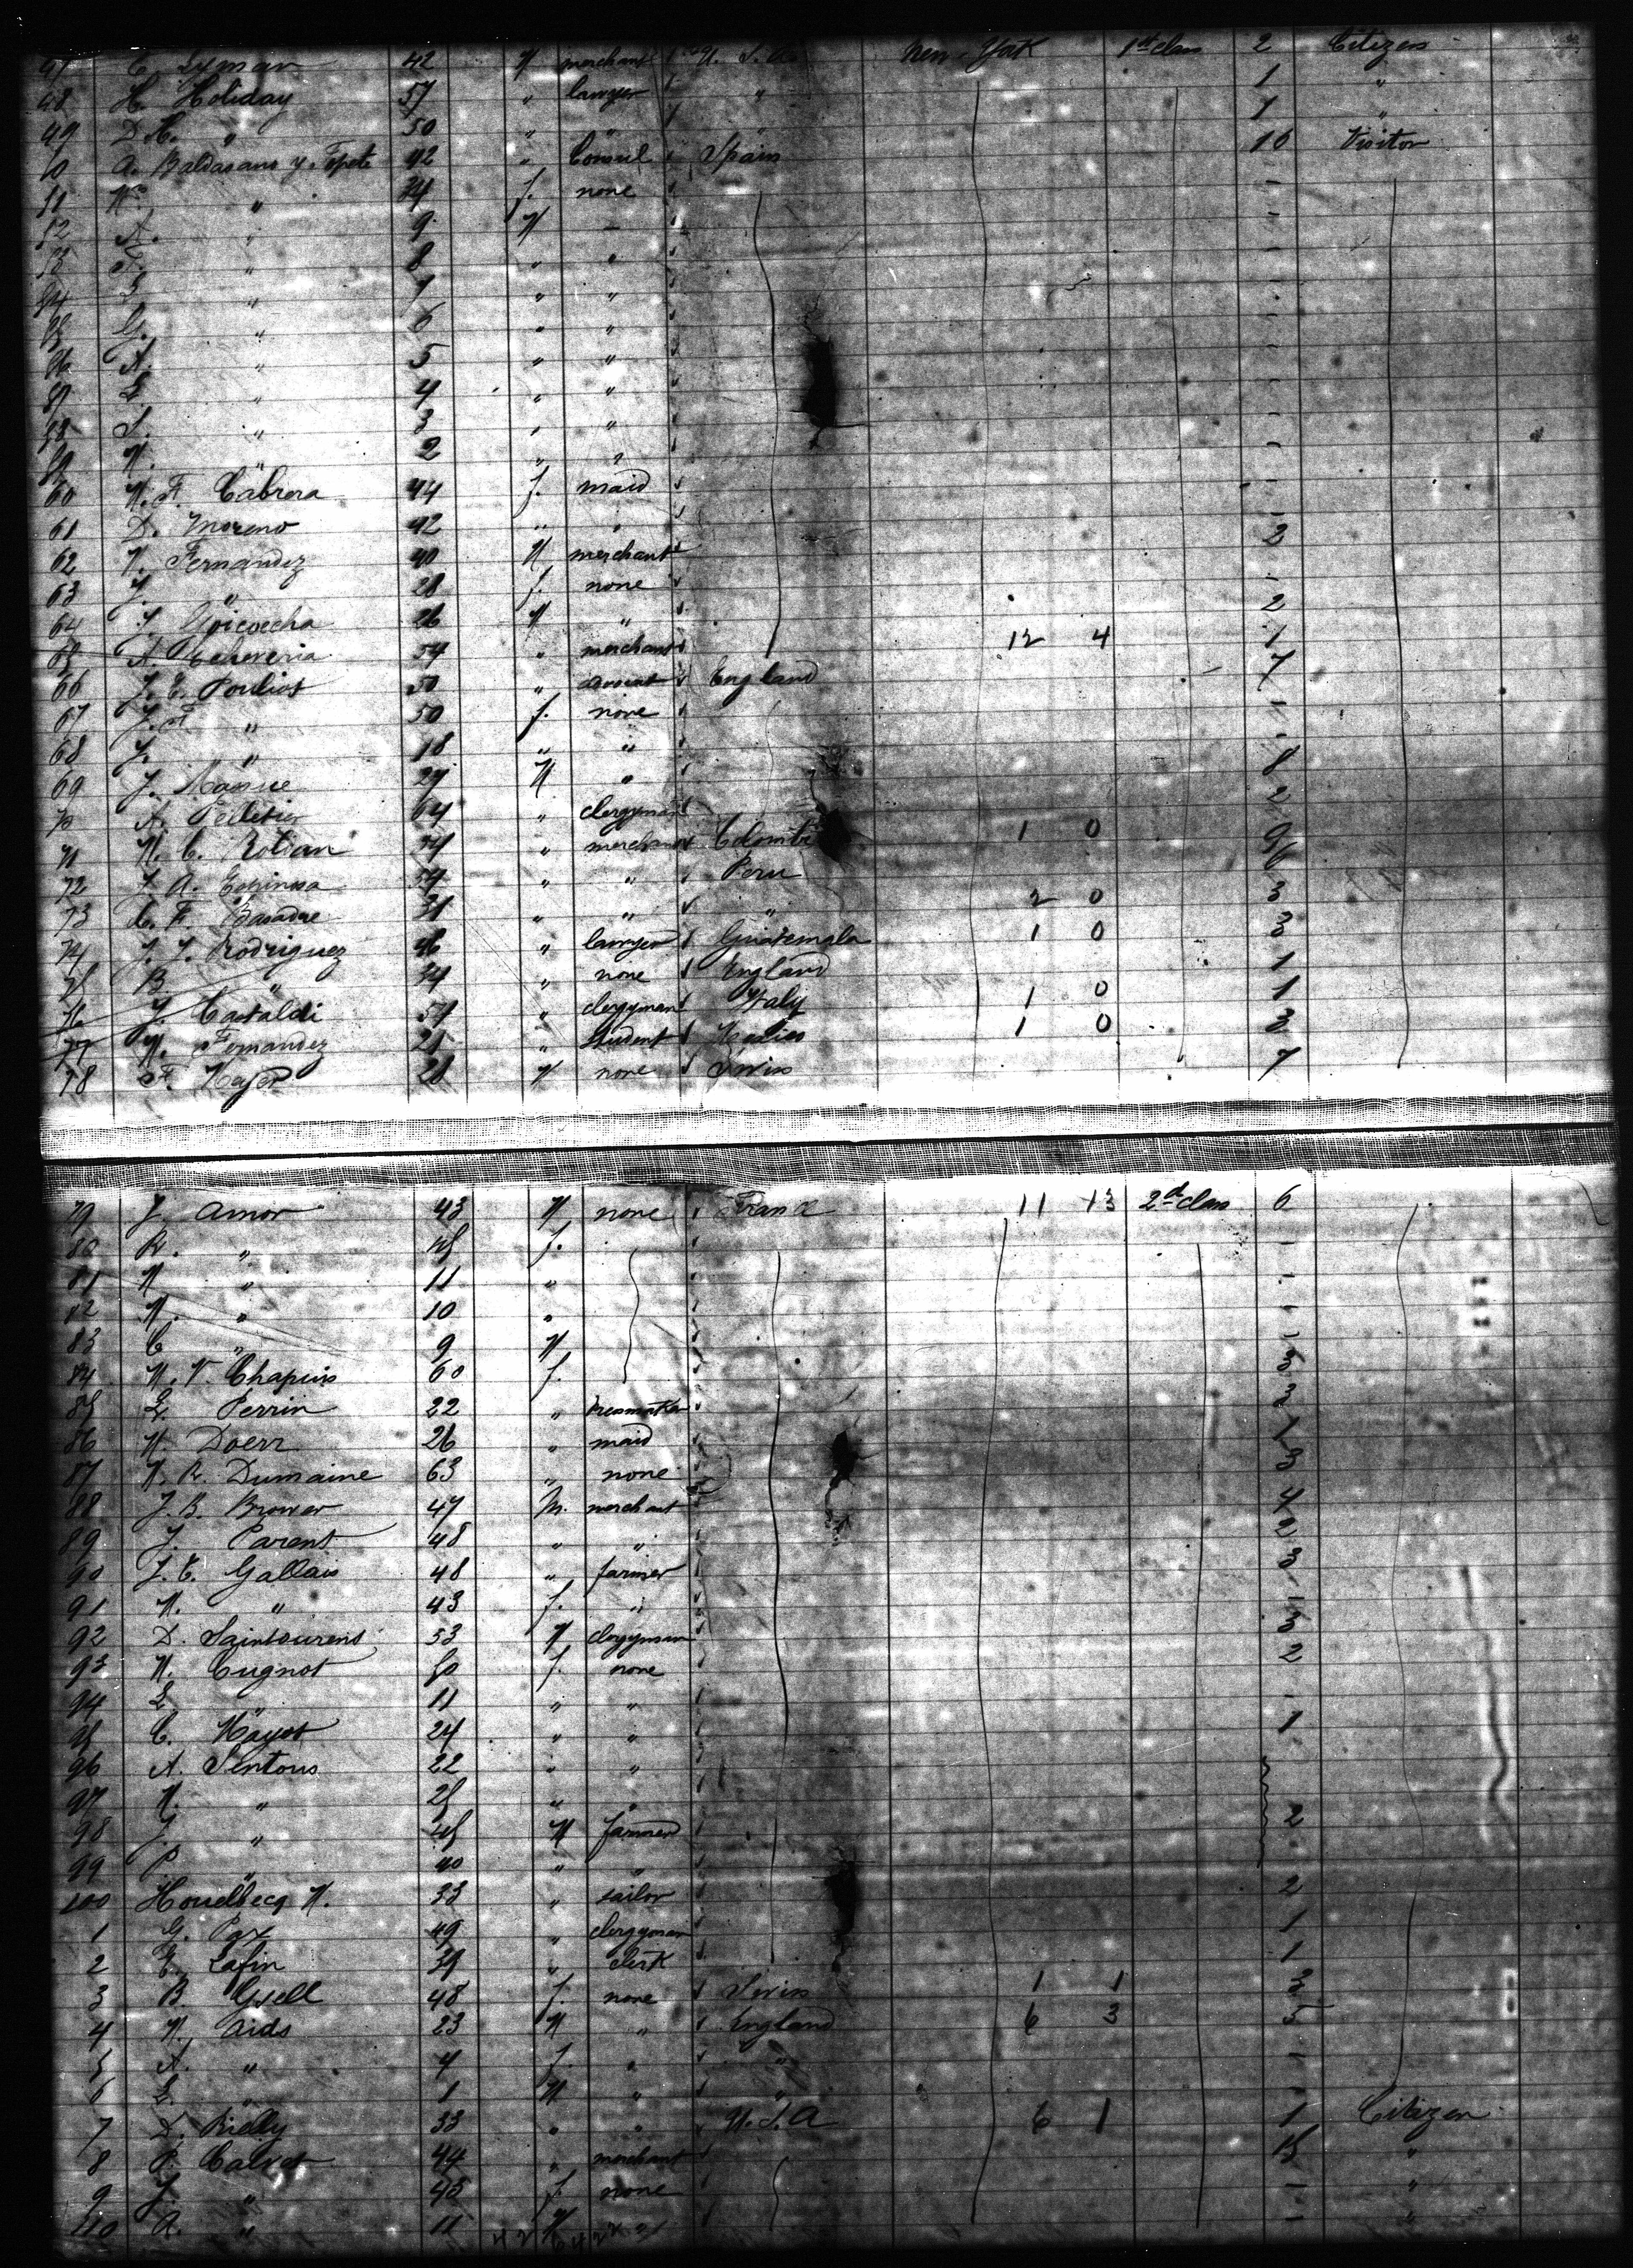 47 C. Lyman 42 M merchant U. S. A. New-York 1st class 2 Citizen
48 H. Holiday 57 " lawyer " 1 "
49 D. H. " 50 " " " 1 "
50 A. Baldasano y. Topete 42 " Consul Spain 10 Visitor
51 " 34 f. none -
52 A. " 9 M - -
53 F. " 8 " " -
54 " 7 " " -
55 G. " 6 " " -
56 A. " 5 " " -
57 L. " 4 " " -
58 S. " 3 " " -
59 M. " 2 " " -
60 M. F. Cabrera 44 f. maid -
61 D. Moreno 42 " " -
62 M. Fernandez 40 M merchant 2
63 J. " 28 f. none -
64 J. Goicoecha 26 M " 2
65 A. Echeveria 54 " merchant 12 4 1
66 J. E. Pouliot 50 " advocat England 7
67 J. F. " 50 f. none -
68 J. " 18 " " -
69 J. Massue 27 M " 8
70 A. Pelletier 64 " clergyman 2
71 M. C. Roldan " merchant Colombi 1 0 9
72 J. A. Espinosa 54 " " Peru 6
73 C. F. Basadre 31 " " " 2 0 3
74 J. J. Rodriguez 46 " lawyer Guatemala 1 0 3
75 B. " 34 " none England 1
76 J. Castaldi 51 " clergyman Italy 1 0 1
77 M. Fernandez 25 " student Mexico 1 0 3
78 F. 28 M none Swiss 7
79 J. Amor 43 M none France 11 13 2d class 6
80 R. " 45 f. -
81 M " 11 " -
82 M. " 10 " -
83 C " 9 M -
84 M. V. Chapuis 60 f. 3
85 L. Perrin 22 " dressmaker 3
86 M. Doerr 26 " maid 1
87 M. R. Dumaine 63 " none 3
88 J. B. Brower 47 M. merchant 4
89 J. Parent 48 " " 2
90 J. E. Gallais 48 " farmer 3
91 M. " 43 f. " -
92 D. Saintourens 53 M clergyman 3
93 M. Cugnot 50 f. none 2
94 L. " 11 " " -
95 C. Mayot 24 " " 1
96 A. Sentous 22 " "
97 M. " 25 " "
98 J. " 45 M farmer 2
99 P. " 40 " "
100 Houelbecq M. 33 " sailor 2
1 G. Pax 49 " clergyman 1
2 E. Lafin 39 " clerk 1
3 B. Gsell 48 f. none Swiss 1 1 3
4 M. Aids 23 M " England 6 3 5
5 A. " 4 f. " " -
6 L. " 1 M " " -
7 D. Rielly 33 " " U. S. A 6 1 1 Citizen
8 P. Calvet 44 " merchant 15 "
9 J. " 45 f. none - "
110 A. " 11 M " - "